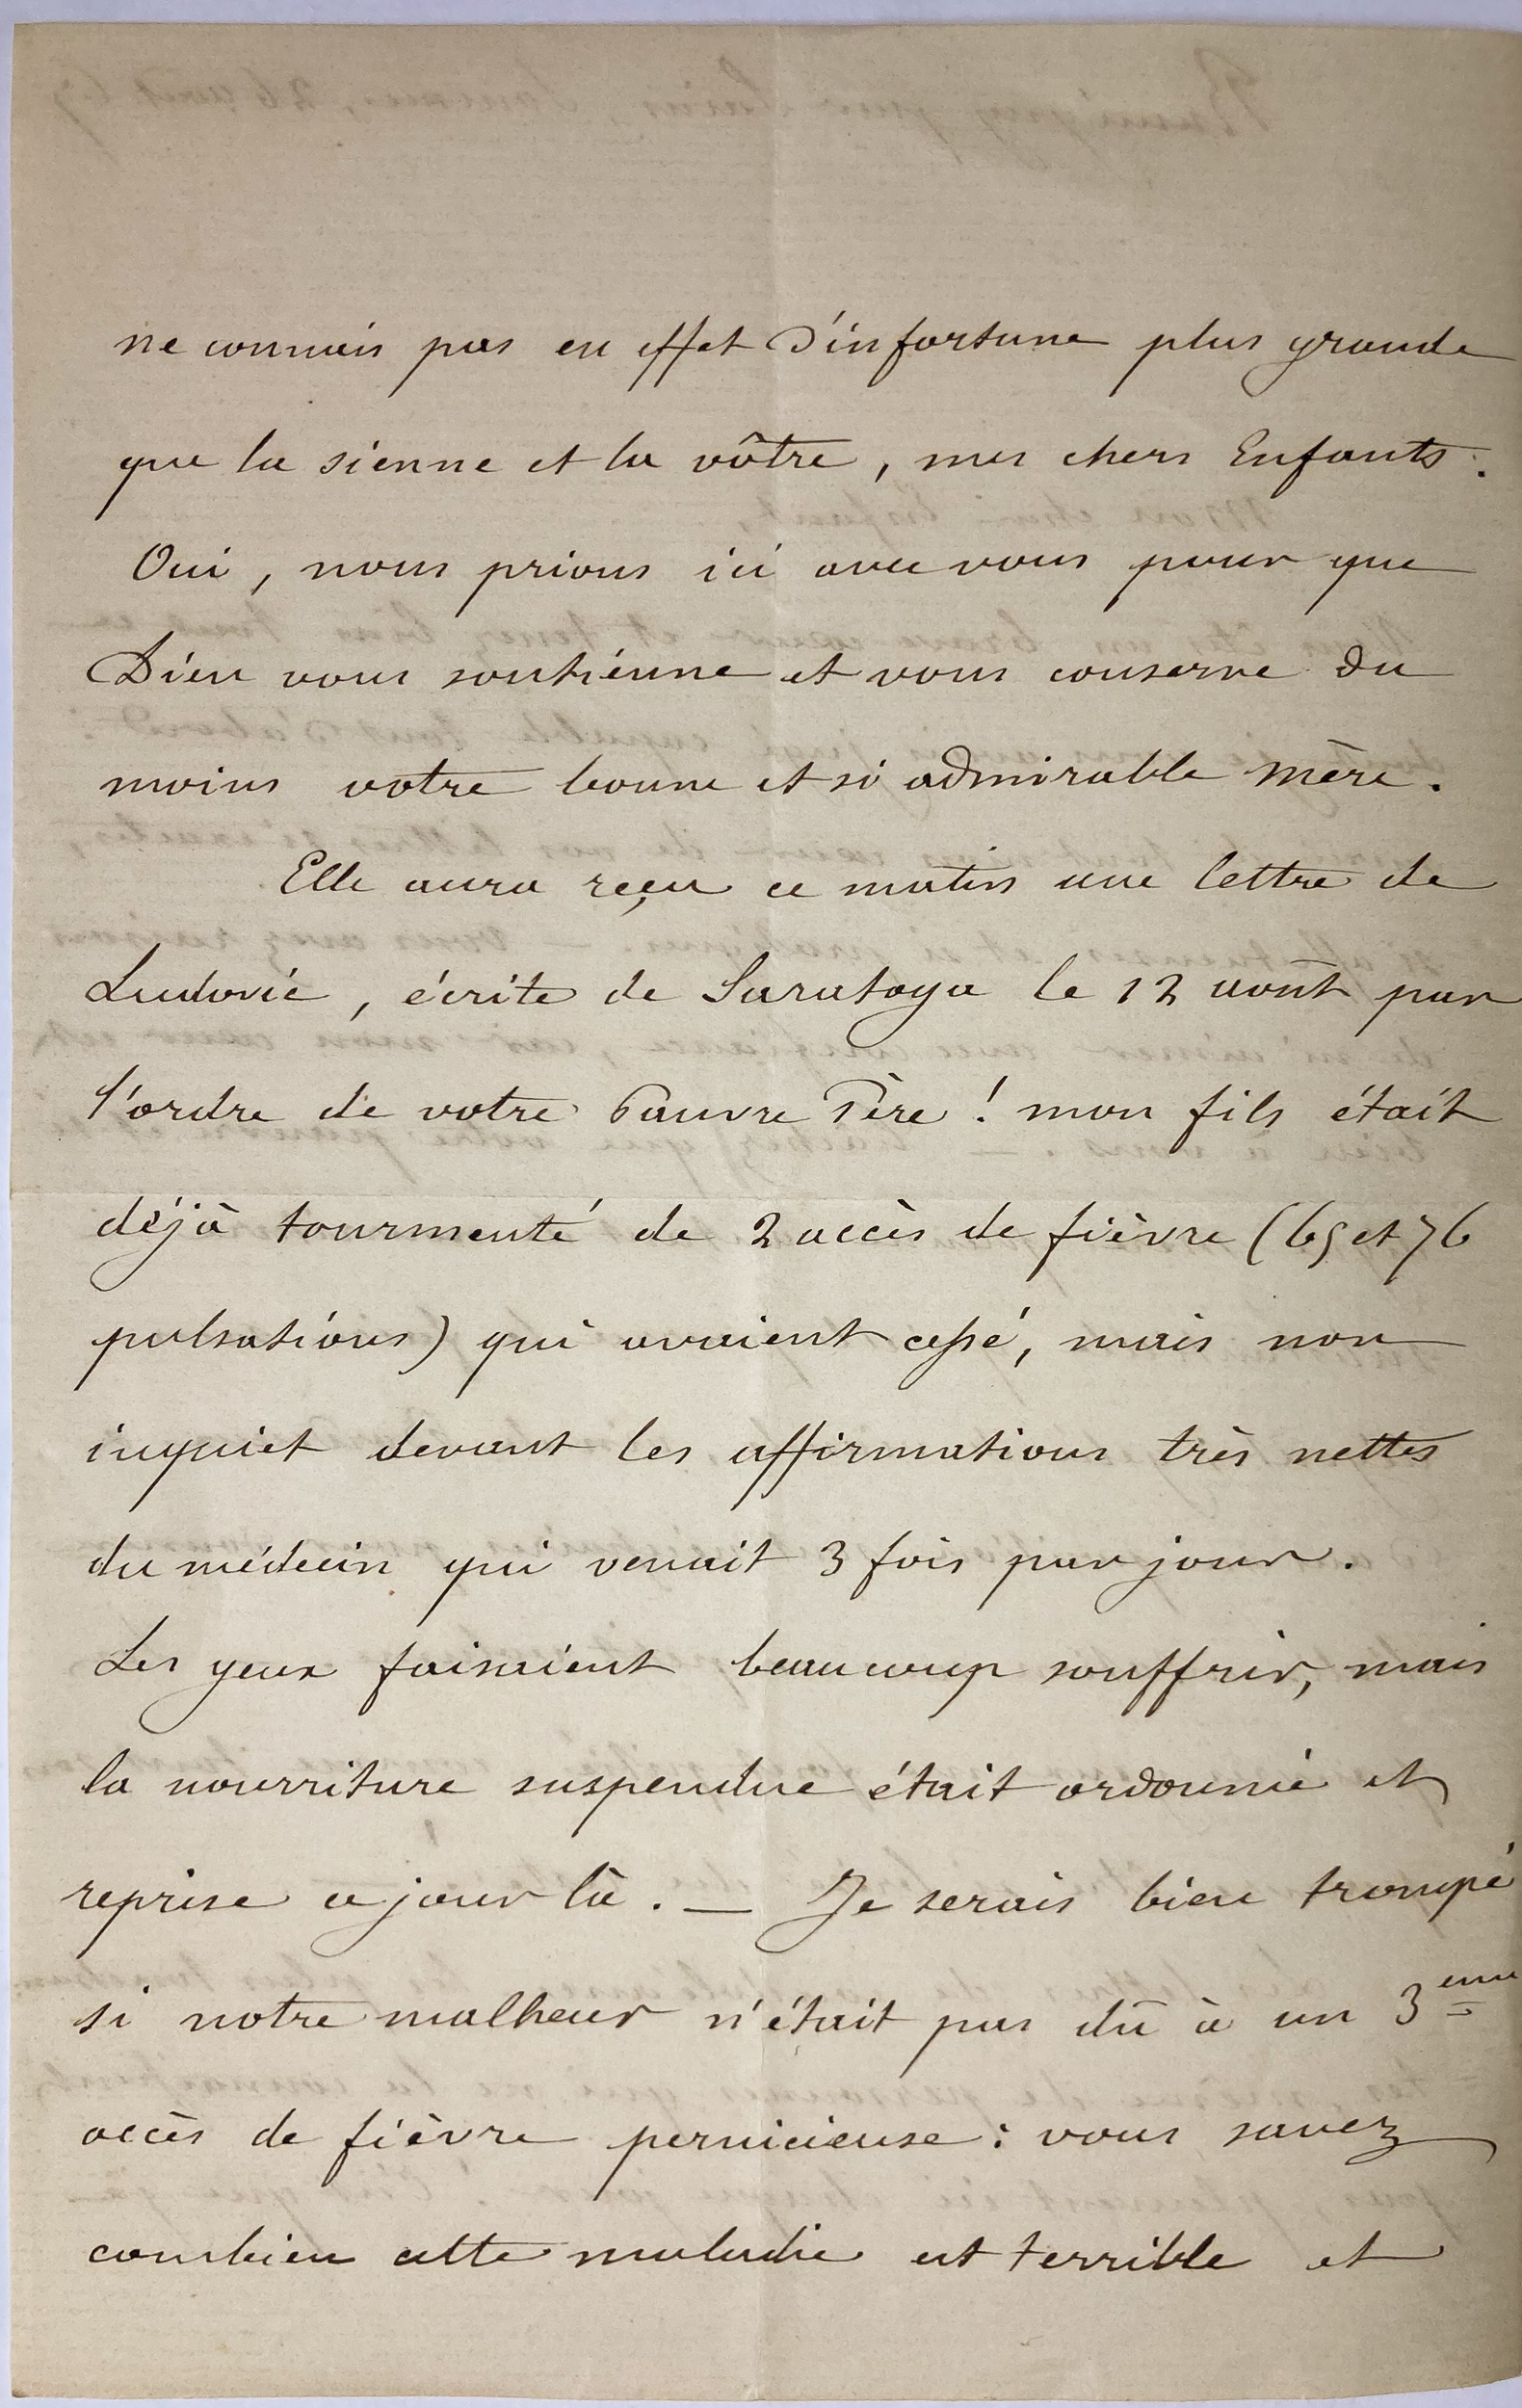 ne connais pas en effet d'infortune plus grande
que la sienne et la vôtre, mes chers Enfants.
Oui, nous prions ici avec vous pour que
Dieu vous soutienne et vous conserve du
moins votre bonne et si admirable mère.
Elle aura reçu ce matin une lettre de
Ludovic, écrite de Saratoga le 12 août par
l'ordre de votre Pauvre Père ! mon fils était
déjà tourmenté de 2 accès de fièvre (65 et 76
pulsations) qui avaient cessé, mais non
inquiet devant les affirmations très nettes
du médecin qui venait 3 fois par jour.
Les yeux faisaient beaucoup souffrir, mais
la nourriture suspendue était ordonnée et
reprise ce jour là. — Je serais bien trompé
si notre malheur n'était pas dû à un 3eme
accès de fièvre pernicieuse : vous savez
combien cette maladie est terrible et